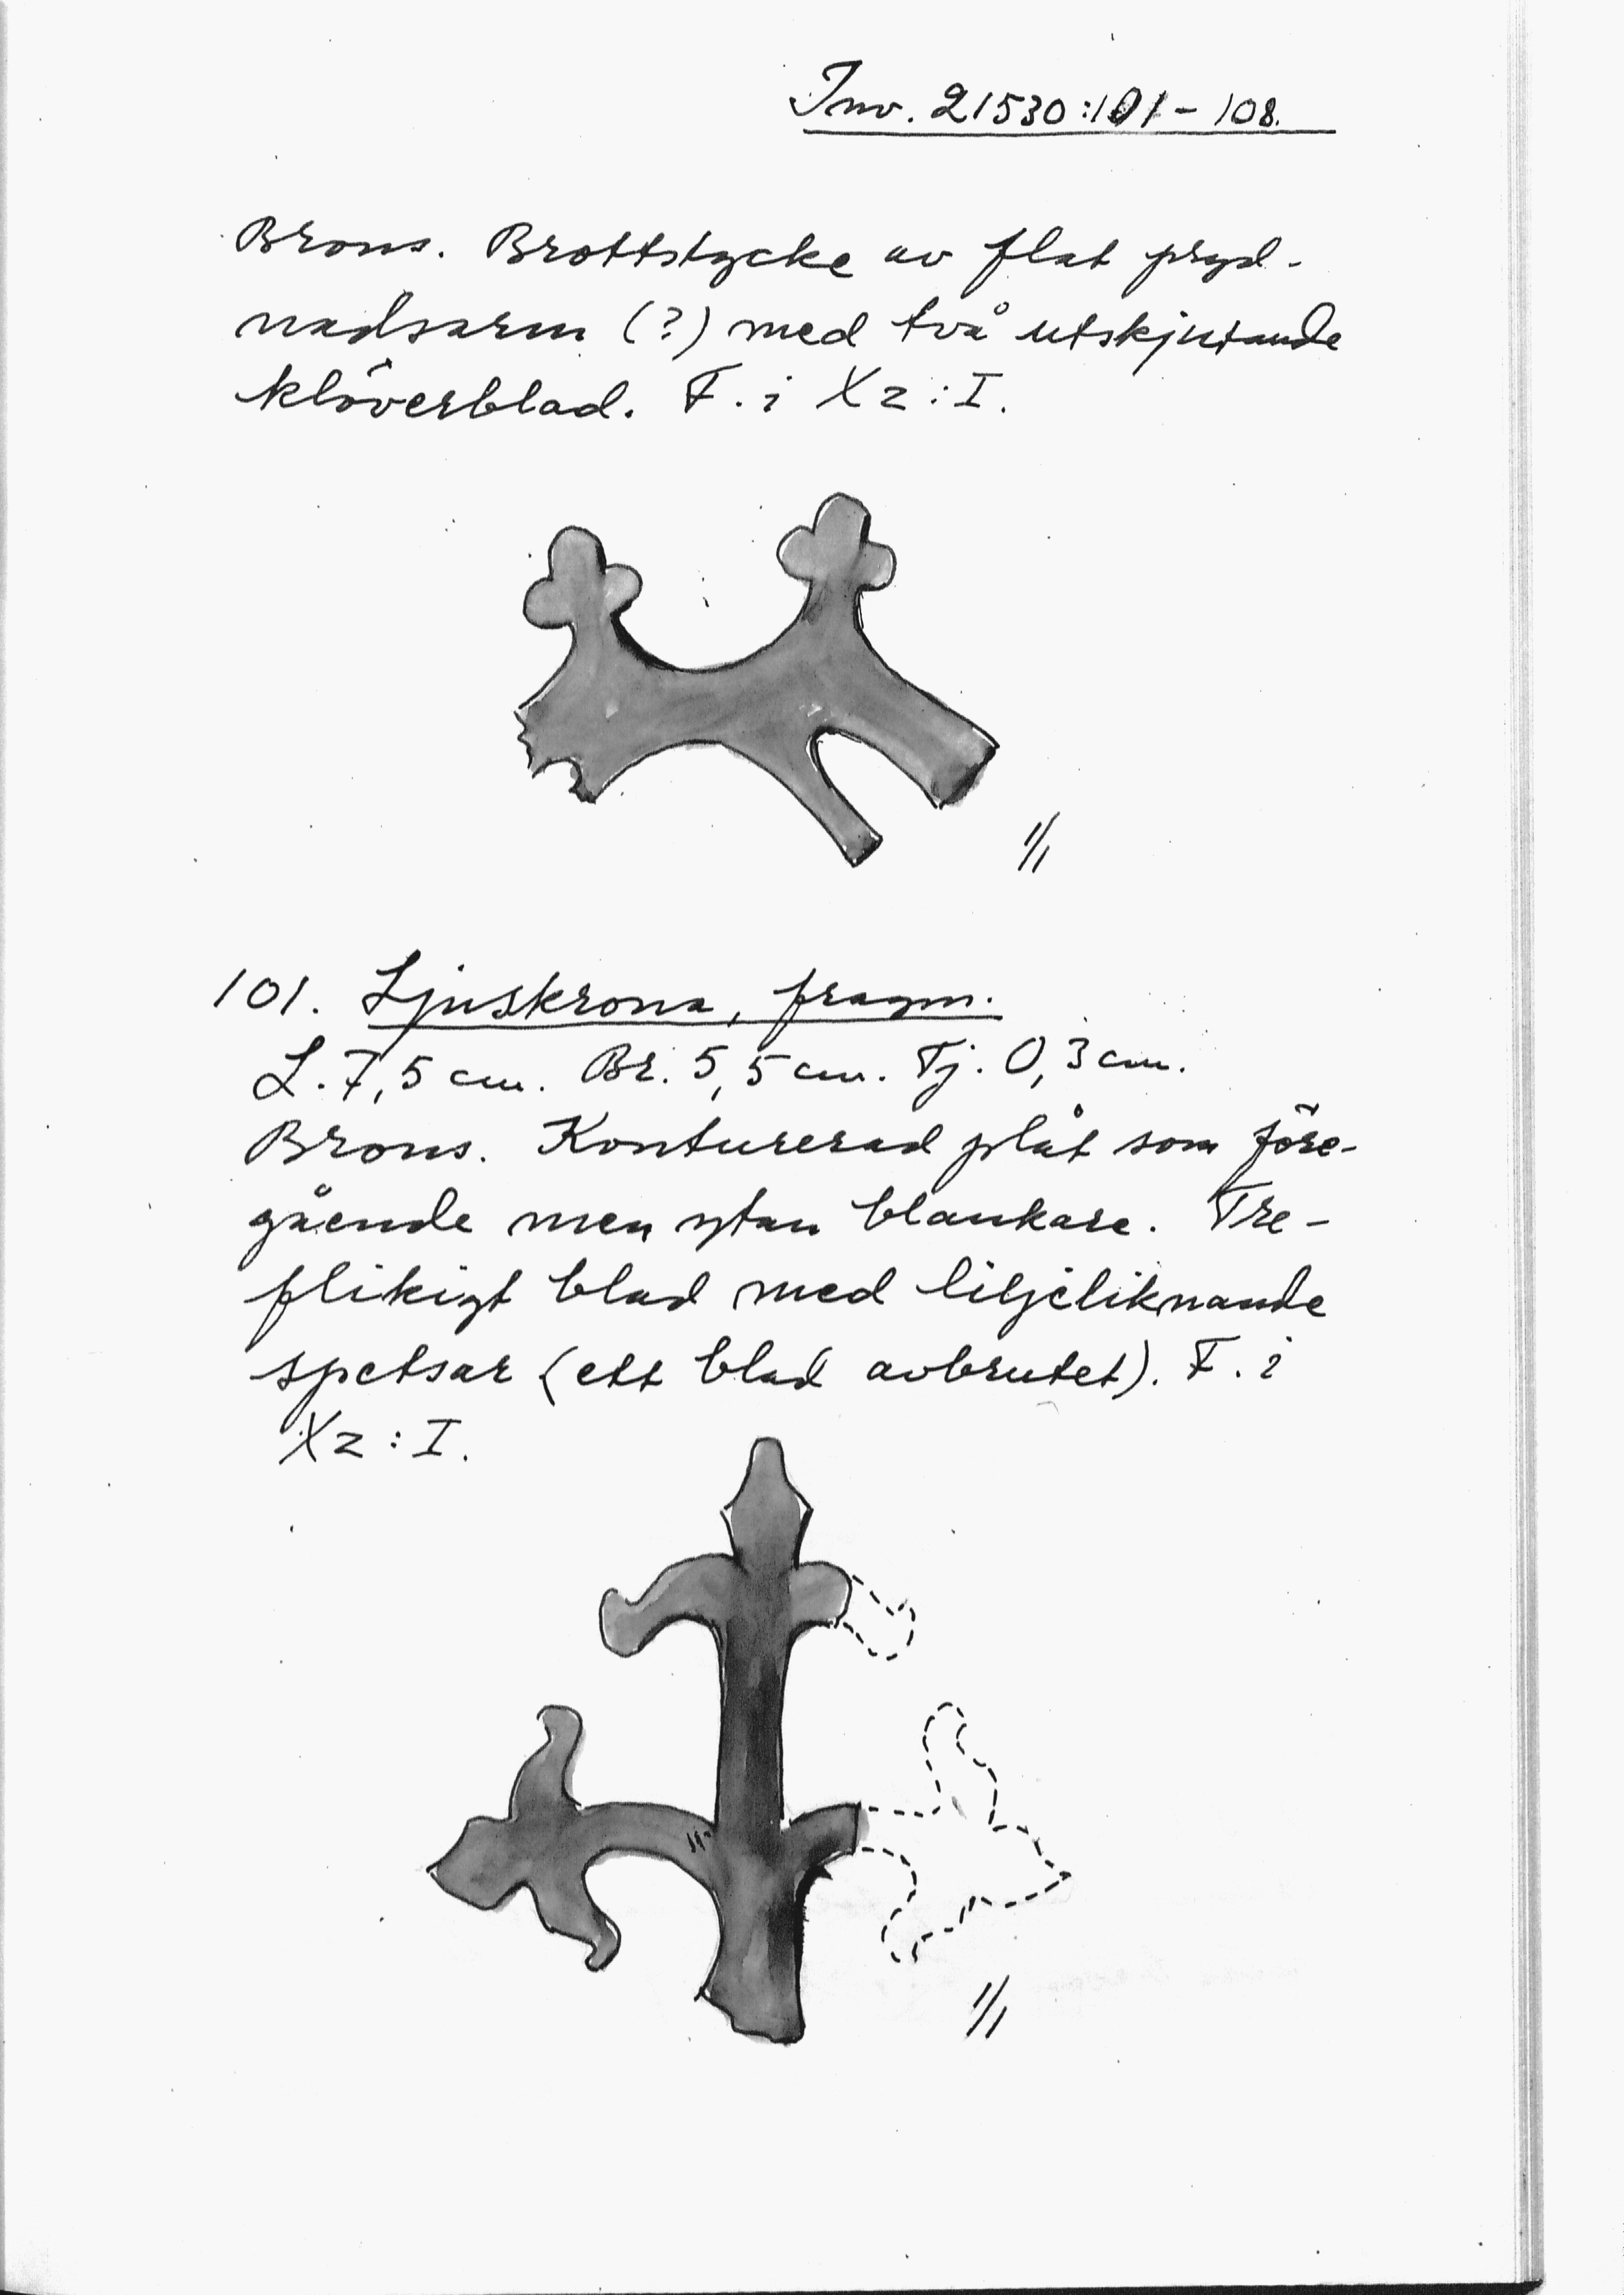 Inv. 21530:101-108.
Brons. Brottstycke av flat pryd-
nadsarm (?) med två utskjutande
klöverblad. F. i X2:I.
1/1
101. Ljuskrona, fragm.
L. 7,5 cm. Br. 5,5 cm. Tj. 0,3 cm.
Brons. Konturerad plåt som före-
gående men ytan blankare. Tre-
flikigt blad med liljeliknande
spetsar (ett blad avbrutet). F. i
X2:I.
1/1